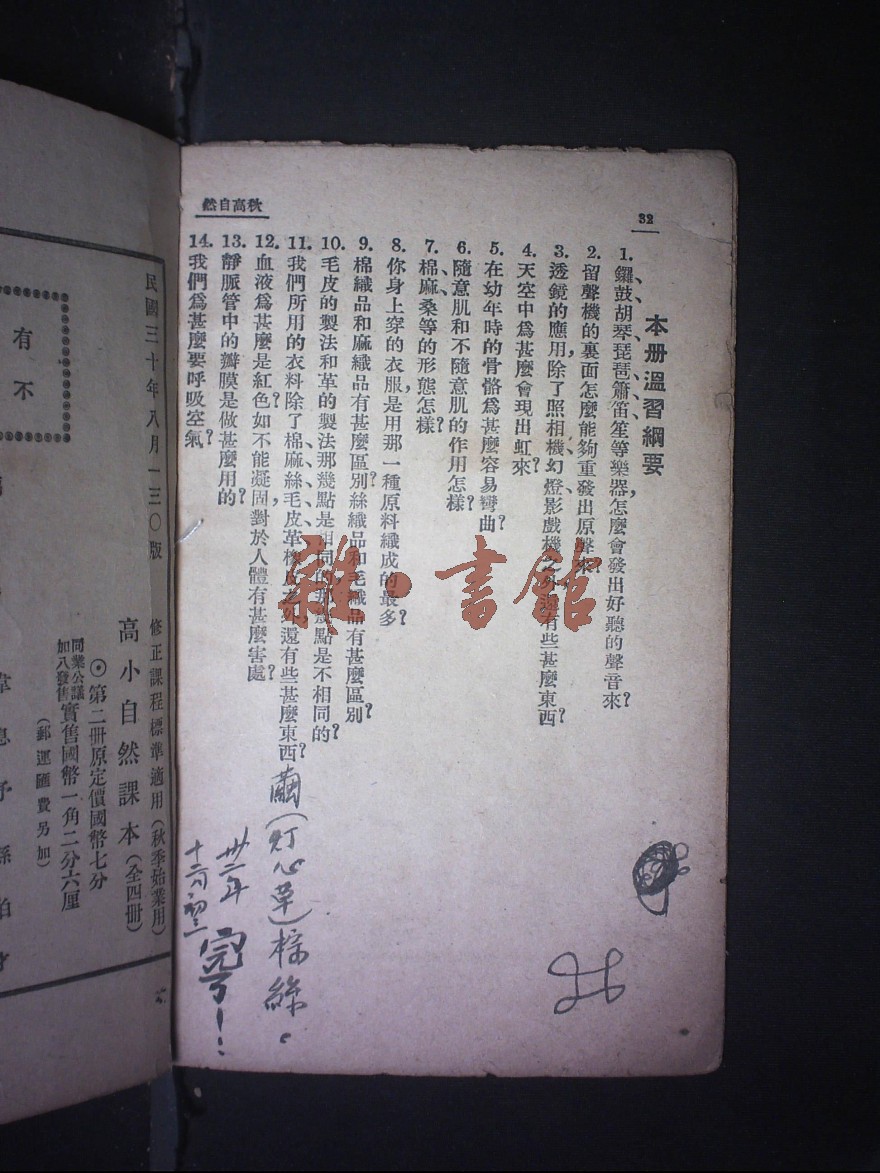 32
秋高自然
本册溫習綱要
1. 鑼、鼓、胡琴、琵琶、簫、笛、笙等樂器，怎麼會發出好聽的聲音來？
2. 留聲機的裏面怎麼能夠重發出原聲來？
3. 透鏡的應用，除了照相機、幻燈、影戲機之外，還有些甚麼東西？
4. 天空中爲甚麼會現出虹來？
5. 在幼年時的骨骼爲甚麼容易彎曲？
6. 隨意肌和不隨意肌的作用怎樣？
7. 棉、麻、桑等的形態怎樣？
8. 你身上穿的衣服，是用那一種原料織成的最多？
9. 棉織品和麻織品有甚麼區別？絲織品和毛織品有甚麼區別？
10. 毛皮的製法和革的製法那幾點是相同的？那幾點是不相同的？
11. 我們所用的衣料除了棉、麻、絲、毛、皮、革、橡皮之外，還有些甚麼東西？
繭(灯心草)棕絲。
12. 血液爲甚麼是紅色？如不能凝固，對於人體有甚麼害處？
13. 靜脈管中的瓣膜是做甚麼用的？
14. 我們爲甚麼要呼吸空氣？
卅二年
十二月初二
完了！
雜·書館
民國三十年八月一三〇版
修正課程標準適用(秋季始業用)
高小自然課本(全四册)
⊙第二册原定價國幣七分
同業公議
加八發售
實售國幣一角二分六厘
(郵運匯費另加)
有
不